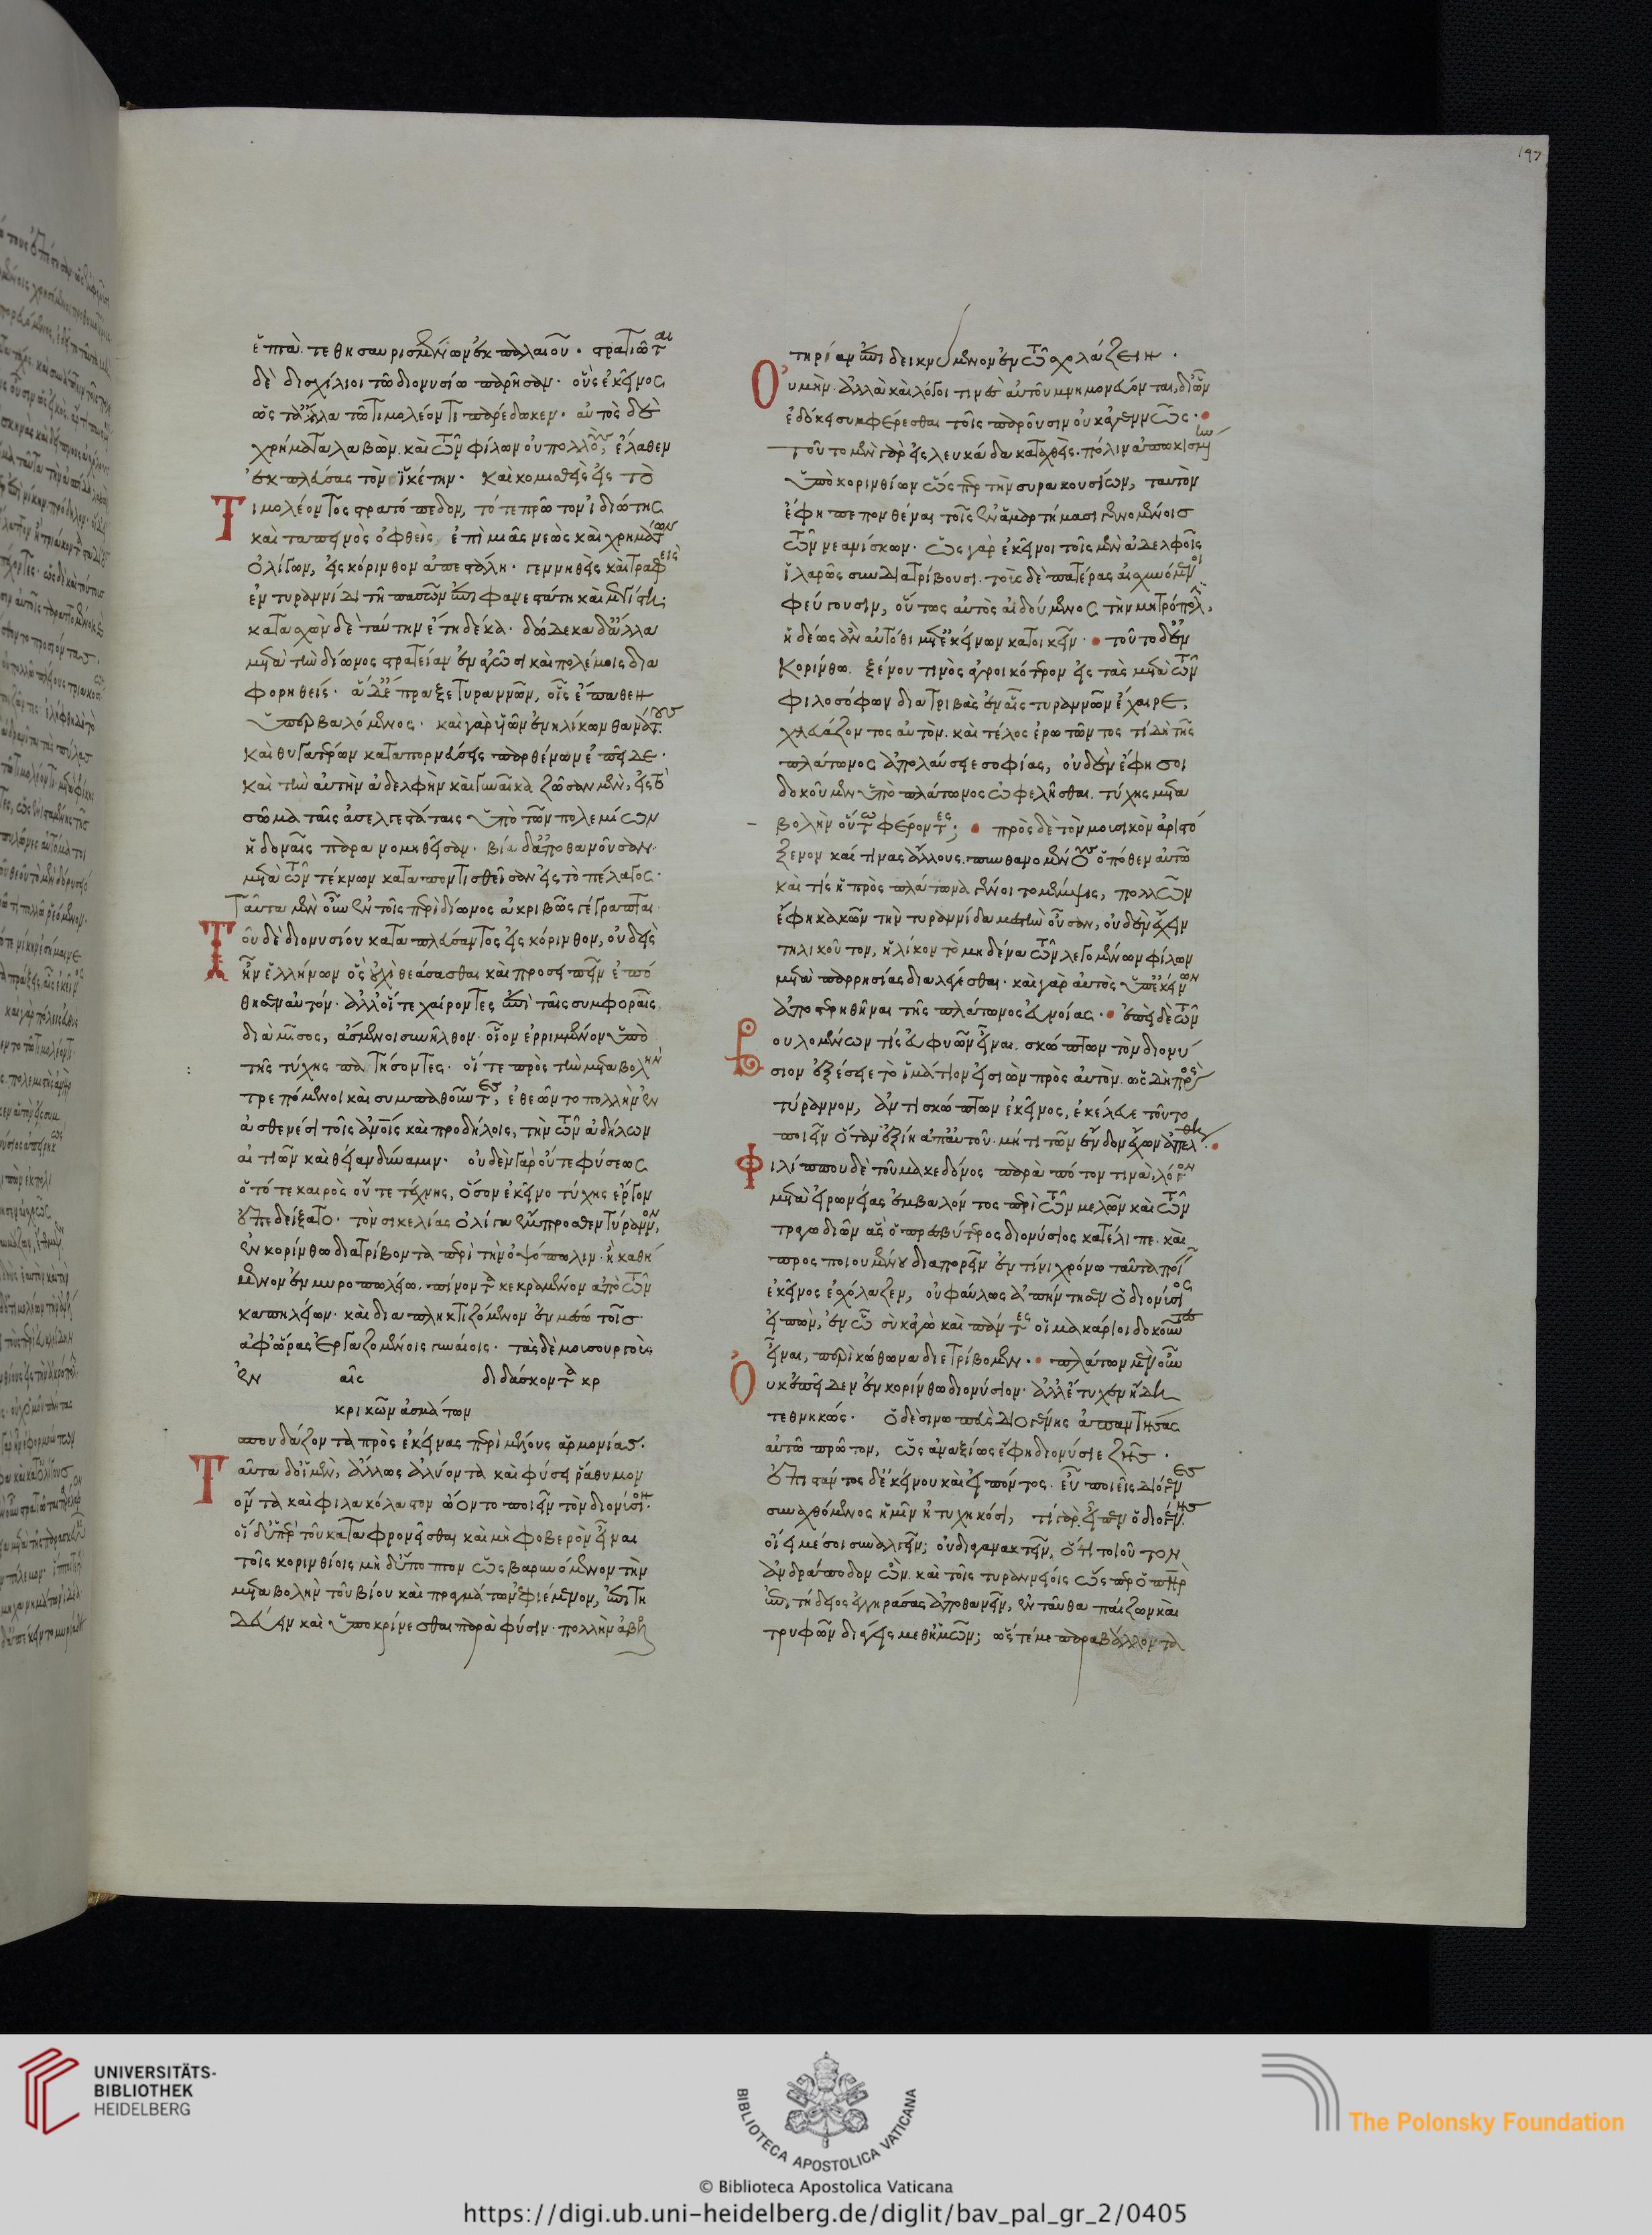 ἑπτά. τεθησαυρισμένων ἐκ παλαιοῦ· στρατιῶται
δὲ δισχίλιοι τῶ διονυσίω παρῆσαν· οὓς ἐκεῖνος
ὡς τἄλλα τῶ τιμολέοντι παρέδωκεν· αὐτὸς δὲ
χρήματα λαβὼν. καὶ τῶν φίλων οὐ πολλοὺς, ἔλαθεν
ἐκπλεύσας τὸν ἱκέτην· καὶ κομισθεὶς εἰς τὸ
Τιμολέοντος στρατόπεδον, τότε πρῶτον ἰδιώτης
καὶ ταπεινὸς ὀφθεὶς ἐπὶ μιᾶς νεὼς καὶ χρημάτων
ὀλίγων, εἰς κόρινθον ἀπεστάλη· γεννηθεὶς καὶ τραφεὶς
ἐν τυραννίδι τῆ πασῶν ἐπιφανεστάτη καὶ μεγίστη;
κατασχὼν δὲ ταύτην ἔτη δέκα· δώδεκα δἄλλα
μετὰ τὴν δίωνος στρατείαν ἐν ἀγῶσι καὶ πολέμοις δια
φορηθείς· ἃ δὲ ἔπραξε τυραννῶν, οἷς ἔπαθεν
ὑπερβαλόμενος· καὶ γὰρ υἱῶν ἐνηλίκων θανάτους
καὶ θυγατέρων καταπορνεύσεις παρθένων ἐπεῖδε·
καὶ τὴν αὐτὴν ἀδελφὴν καὶ γυναῖκα ζῶσαν μὲν, εἰς τὸ
σῶμα ταῖς ἀσελγεστάταις ὑπὸ τῶν πολεμίων
ἡδοναῖς παρανομηθεῖσαν· βία δἀποθανοῦσαν
μετὰ τῶν τέκνων καταποντισθεῖσαν εἰς τὸ πέλαγος·
Ταῦτα μὲν οὖν ἐν τοῖς περὶ δίωνος ἀκριβῶς γέγραπται
Τοῦ δὲ διονυσίου καταπλεύσαντος εἰς κόρινθον, οὐδεὶς
ἦν ἑλλήνων ὃς οὐχὶ θεάσασθαι καὶ προσειπεῖν ἐπό
θησεν αὐτόν· ἀλλοἵ τε χαίροντες ἐπὶ ταῖς συμφοραῖς
διὰ μῖσος, ἀσμενοι συνῆλθον· οἷον ἐρριμμένον ὑπὸ
τῆς τύχης πατήσοντες· οἵ τε πρὸς τὴν μεταβολὴν
τρεπόμενοι καὶ συμπαθοῦντες, ἐθεῶντο πολλὴν ἐν
ἀσθενέσι τοῖς ἀνοις καὶ προδήλοις, τὴν τῶν ἀδήλων
αἰτιῶν καὶ θείαν δύναμιν· οὐδὲν γὰρ οὔτε φύσεως
ὁ τότε καιρὸς οὔτε τέχνης, ὅσον ἐκεῖνο τύχης ἔργον
ἐπεδείξατο· τὸν σικελίας ὀλίγω ἔμπροσθεν τύραννον,
ἐν κορίνθω διατρίβοντα περὶ τὴν ὀψόπωλιν· ἢ καθή
μενον ἐν μυροπωλείω. πίνοντα κεκραμένον ἀπὸ τῶν
καπηλείων· καὶ διαπληκτιζόμενον ἐν μέσω τοῖς
ἀφὥρας ἐργαζομένοις γυναίοις· τὰς δὲ μουσουργοὺς
ἐν αῖς διδάσκοντα κρ
κρικῶν ἀσμάτων
σπουδάζοντα πρὸς ἐκείνας περὶ μέλους ἁρμονίας·
Ταῦτα δοἱ μὲν, ἄλλως ἀλύοντα καὶ φύσει ῥάθυμον
ὄντα καὶ φιλακόλαστον ὤοντο ποιεῖν τὸν διονύσιον·
οἱ δὑπὲρ τοῦ καταφρονεῖσθαι καὶ μὴ φοβερὸν εἶναι
τοῖς κορινθίοις μὴ δὕποπτον ὡς βαρυνόμενον τὴν
μεταβολὴν τοῦ βίου καὶ πραγμάτων ἐφιέμενον, ἐπιτη
δεύειν καὶ ὑποκρίνεσθαι παρὰ φύσιν· πολλὴν ἀβελ
147
τηρίαν ἐπιδεικνύμενον ἐν τῶ σχολάζειν·
Οὐ μὴν ἀλλὰ καὶ λόγοι τινὲς αὐτοῦ μνημονεύονται, διὧν
ἐδόκει συμφέρεσθαι τοῖς παροῦσιν οὐκ ἀγεννῶς·
τοῦτο μὲν γὰρ εἰς λευκάδα καταχθεὶς· πόλιν ἀπωκισμένην
ὑπὸ κορινθίων ὥσπερ τὴν συρακουσίων, ταυτὸν
ἔφη πεπονθέναι τοῖς ἐν ἁμαρτήμασι γενομένοις
τῶν νεανίσκων· ὡς γὰρ ἐκεῖνοι τοῖς μὲν ἀδελφοῖς
ἱλαρῶς συνδιατρίβουσι. τοὺς δὲ πατέρας αἰσχυνόμενοι
φεύγουσιν, οὕτως αὐτὸς αἰδούμενος τὴν μητρόπολιν,
ἡδέως ἂν αὐτόθι μετἐκείνων κατοικεῖν· τοῦτο δἐν
Κορίνθω. ξένου τινὸς ἀγροικότερον εἰς τὰς μετὰ τῶν
φιλοσόφων διατριβὰς ἐν αἷς τυραννῶν ἔχαιρε,
χλευάζοντος αὐτὸν. καὶ τέλος ἐρωτῶντος τί δὴ τῆς
πλάτωνος ἀπολαύσειε σοφίας, οὐδὲν ἔφη σοι
δοκοῦμεν ὑπὸ πλάτωνος ὠφελῆσθαι. τύχης μετα
βολὴν οὕτω φέροντες; πρὸς δὲ τὸν μουσικὸν ἀριστό
ξενον καί τινας ἄλλους. πυνθανομένους ὁπόθεν αὐτῶ
καὶ τίς ἡ πρὸς πλάτωνα γένοιτο μέμψις, πολλῶν
ἔφη κακῶν τὴν τυραννίδα μεστὴν οὖσαν, οὐδὲν ἔχειν
τηλικοῦτον, ἡλίκον τὸ μηδένα τῶν λεγομένων φίλων
μετὰ παρρησίας διαλέγεσθαι· καὶ γὰρ αὐτὸς ὑπἐκείνων
ἀποστερηθῆναι τῆς πλάτωνος εὐνοίας· ἐπεὶ δὲ τῶν
Βουλομένων τίς εὐφυῶν εἶναι. σκώπτων τὸν διονύ
σιον ἐξέσειε τὸ ἱμάτιον εἰσιὼν πρὸς αὐτὸν. ὡς δὴ πρὸς
τύραννον, ἀντισκώπτων ἐκεῖνος, ἐκέλευε τοῦτο
ποιεῖν ὅταν ἐξίη ἀπαὐτοῦ· μή τι τῶν ἔνδον ἔχων ἀπέλθη·
Φιλίππου δὲ τοῦ μακεδόνος παρὰ πότον τινὰ, λόγον
μετὰ εἰρωνείας ἐμβαλόντος περὶ τῶν μελῶν καὶ τῶν
τραγωδιῶν ἃς ὁ πρεσβύτερος διονύσιος κατέλιπε. καὶ
προσποιουμένου διαπορεῖν ἐν τίνι χρόνω ταῦτα ποιεῖν
ἐκεῖνος ἐσχόλαζεν, οὐ φαύλως ἀπήντησεν ὁ διονύσιος
εἰπὼν, ἐν ὧ σὺ κἀγὼ καὶ πάντες οἱ μακάριοι δοκοῦντες
εἶναι, περὶ κώθωνα διετρίβομεν· πλάτων μὲν οὖν
Οὐκ ἐπεῖδεν ἐν κορίνθω διονύσιον· ἀλλἔτυχεν ἤδη
τεθνηκώς· ὁ δὲ σινωπεὺς διογένης ἀπαντήσας
αὐτῶ πρῶτον, ὡς ἀναξίως ἔφη διονύσιε ζῆς·
ἐπιστάντος δἐκείνου καὶ εἰπόντος. εὖ ποιεῖς διόγενες
συναχθόμενος ἡμῖν ἠτυχηκόσι, τί γὰρ. εἶπεν ὁ διογένης
οἴει με σοι συναλγεῖν; οὐδἀγανακτεῖν, ὅτι τοιοῦτον
ἀνδράποδον ὢν. καὶ τοῖς τυραννείοις ὥσπερ ὁ πατὴρ
ἐπιτήδειος ἐγγηράσας ἀποθανεῖν, ἐνταῦθα παίζων καὶ
τρυφῶν διάγεις μεθἡμῶν; ὥστέ με παραβάλλοντα
UNIVERSITÄTS-
BIBLIOTHEK
HEIDELBERG
BIBLIOTECA APOSTOLICA VATICANA
The Polonsky Foundation
© Biblioteca Apostolica Vaticana
https://digi.ub.uni-heidelberg.de/diglit/bav_pal_gr_2/0405